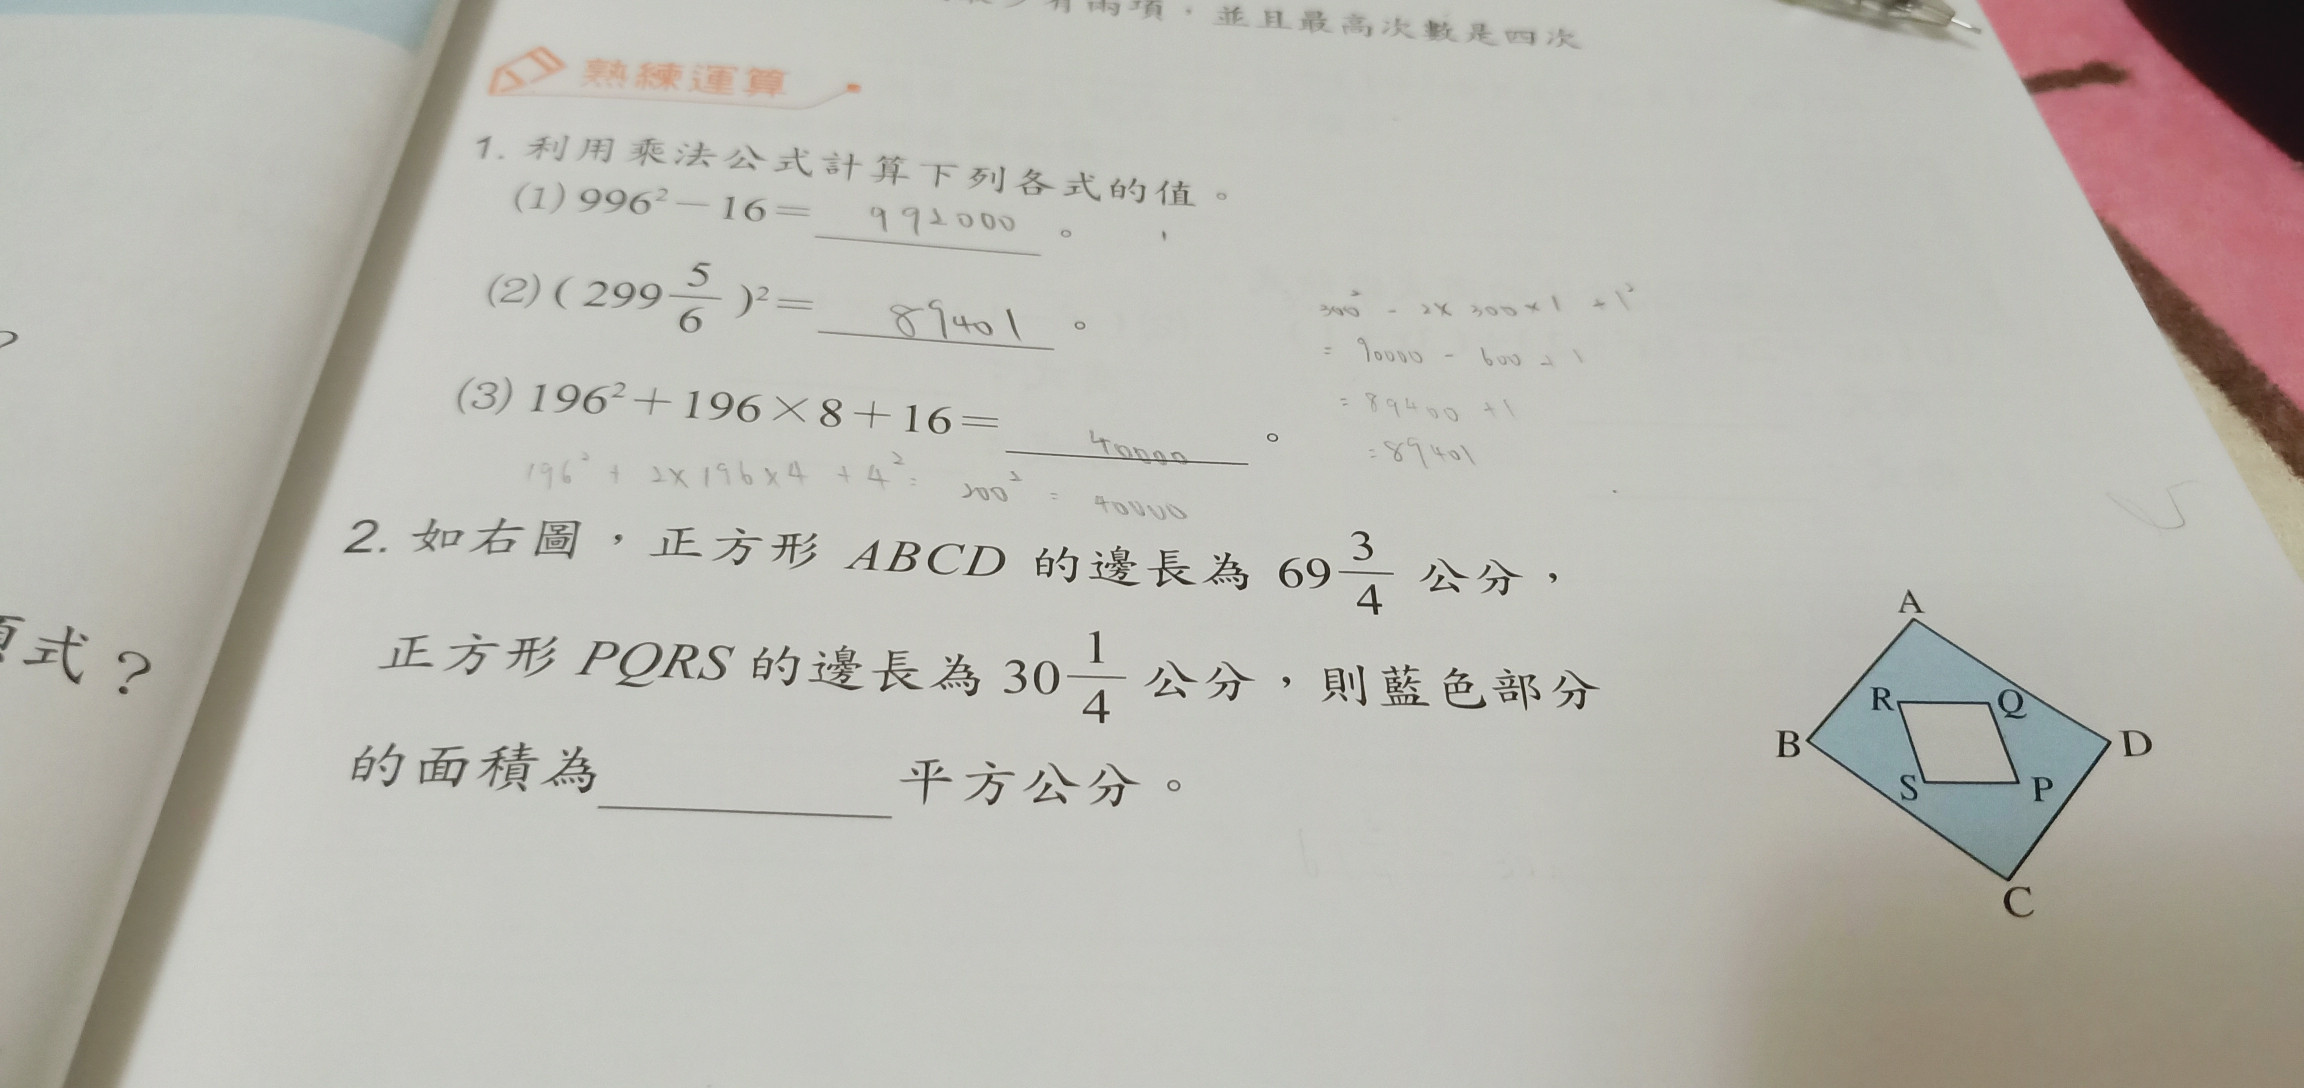 有兩項，並且最高次數是四次
熟練運算
1. 利用乘法公式計算下列各式的值。
(1) 996²－16＝ 992000 。
(2) ( 299 5/6 )²＝ 89401 。
300² - 2×300×1 + 1²
= 90000 - 600 + 1
= 89400 + 1
= 89401
(3) 196²＋196×8＋16＝ 40000 。
196² + 2×196×4 + 4² = 200² = 40000
2. 如右圖，正方形 ABCD 的邊長為 69 3/4 公分，
正方形 PQRS 的邊長為 30 1/4 公分，則藍色部分
的面積為 平方公分。
A
R Q
B D
S P
C
式？